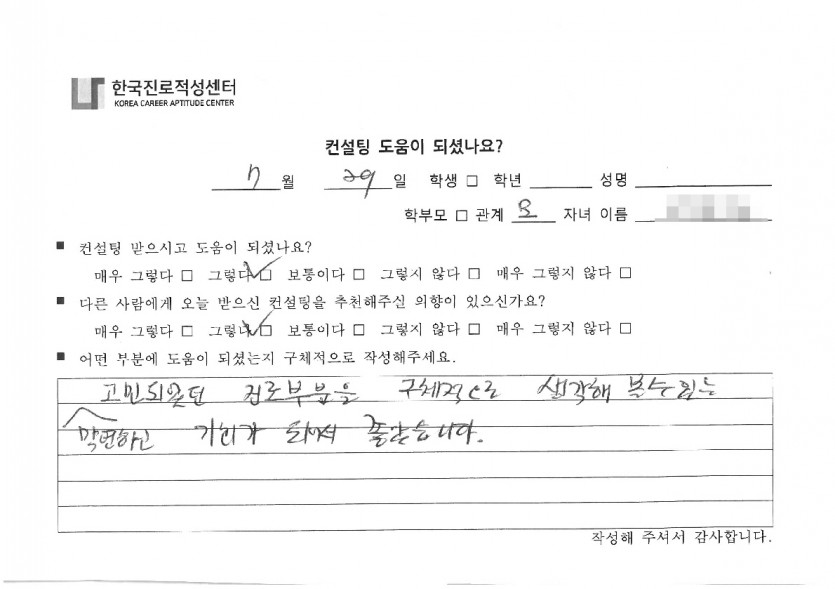 한국진로적성센터
KOREA CAREER APTITUDE CENTER
컨설팅 도움이 되셨나요?
7 월 29 일 학생 □ 학년 성명
학부모 □ 관계 모 자녀 이름
■ 컨설팅 받으시고 도움이 되셨나요?
매우 그렇다 □ 그렇다 □ 보통이다 □ 그렇지 않다 □ 매우 그렇지 않다 □
■ 다른 사람에게 오늘 받으신 컨설팅을 추천해주신 의향이 있으신가요?
매우 그렇다 □ 그렇다 □ 보통이다 □ 그렇지 않다 □ 매우 그렇지 않다 □
■ 어떤 부분에 도움이 되셨는지 구체적으로 작성해주세요.
고민되었던 진로부분을 구체적으로 생각해 볼수있는
막연하고 기회가 되어서 좋았습니다.
작성해 주셔서 감사합니다.